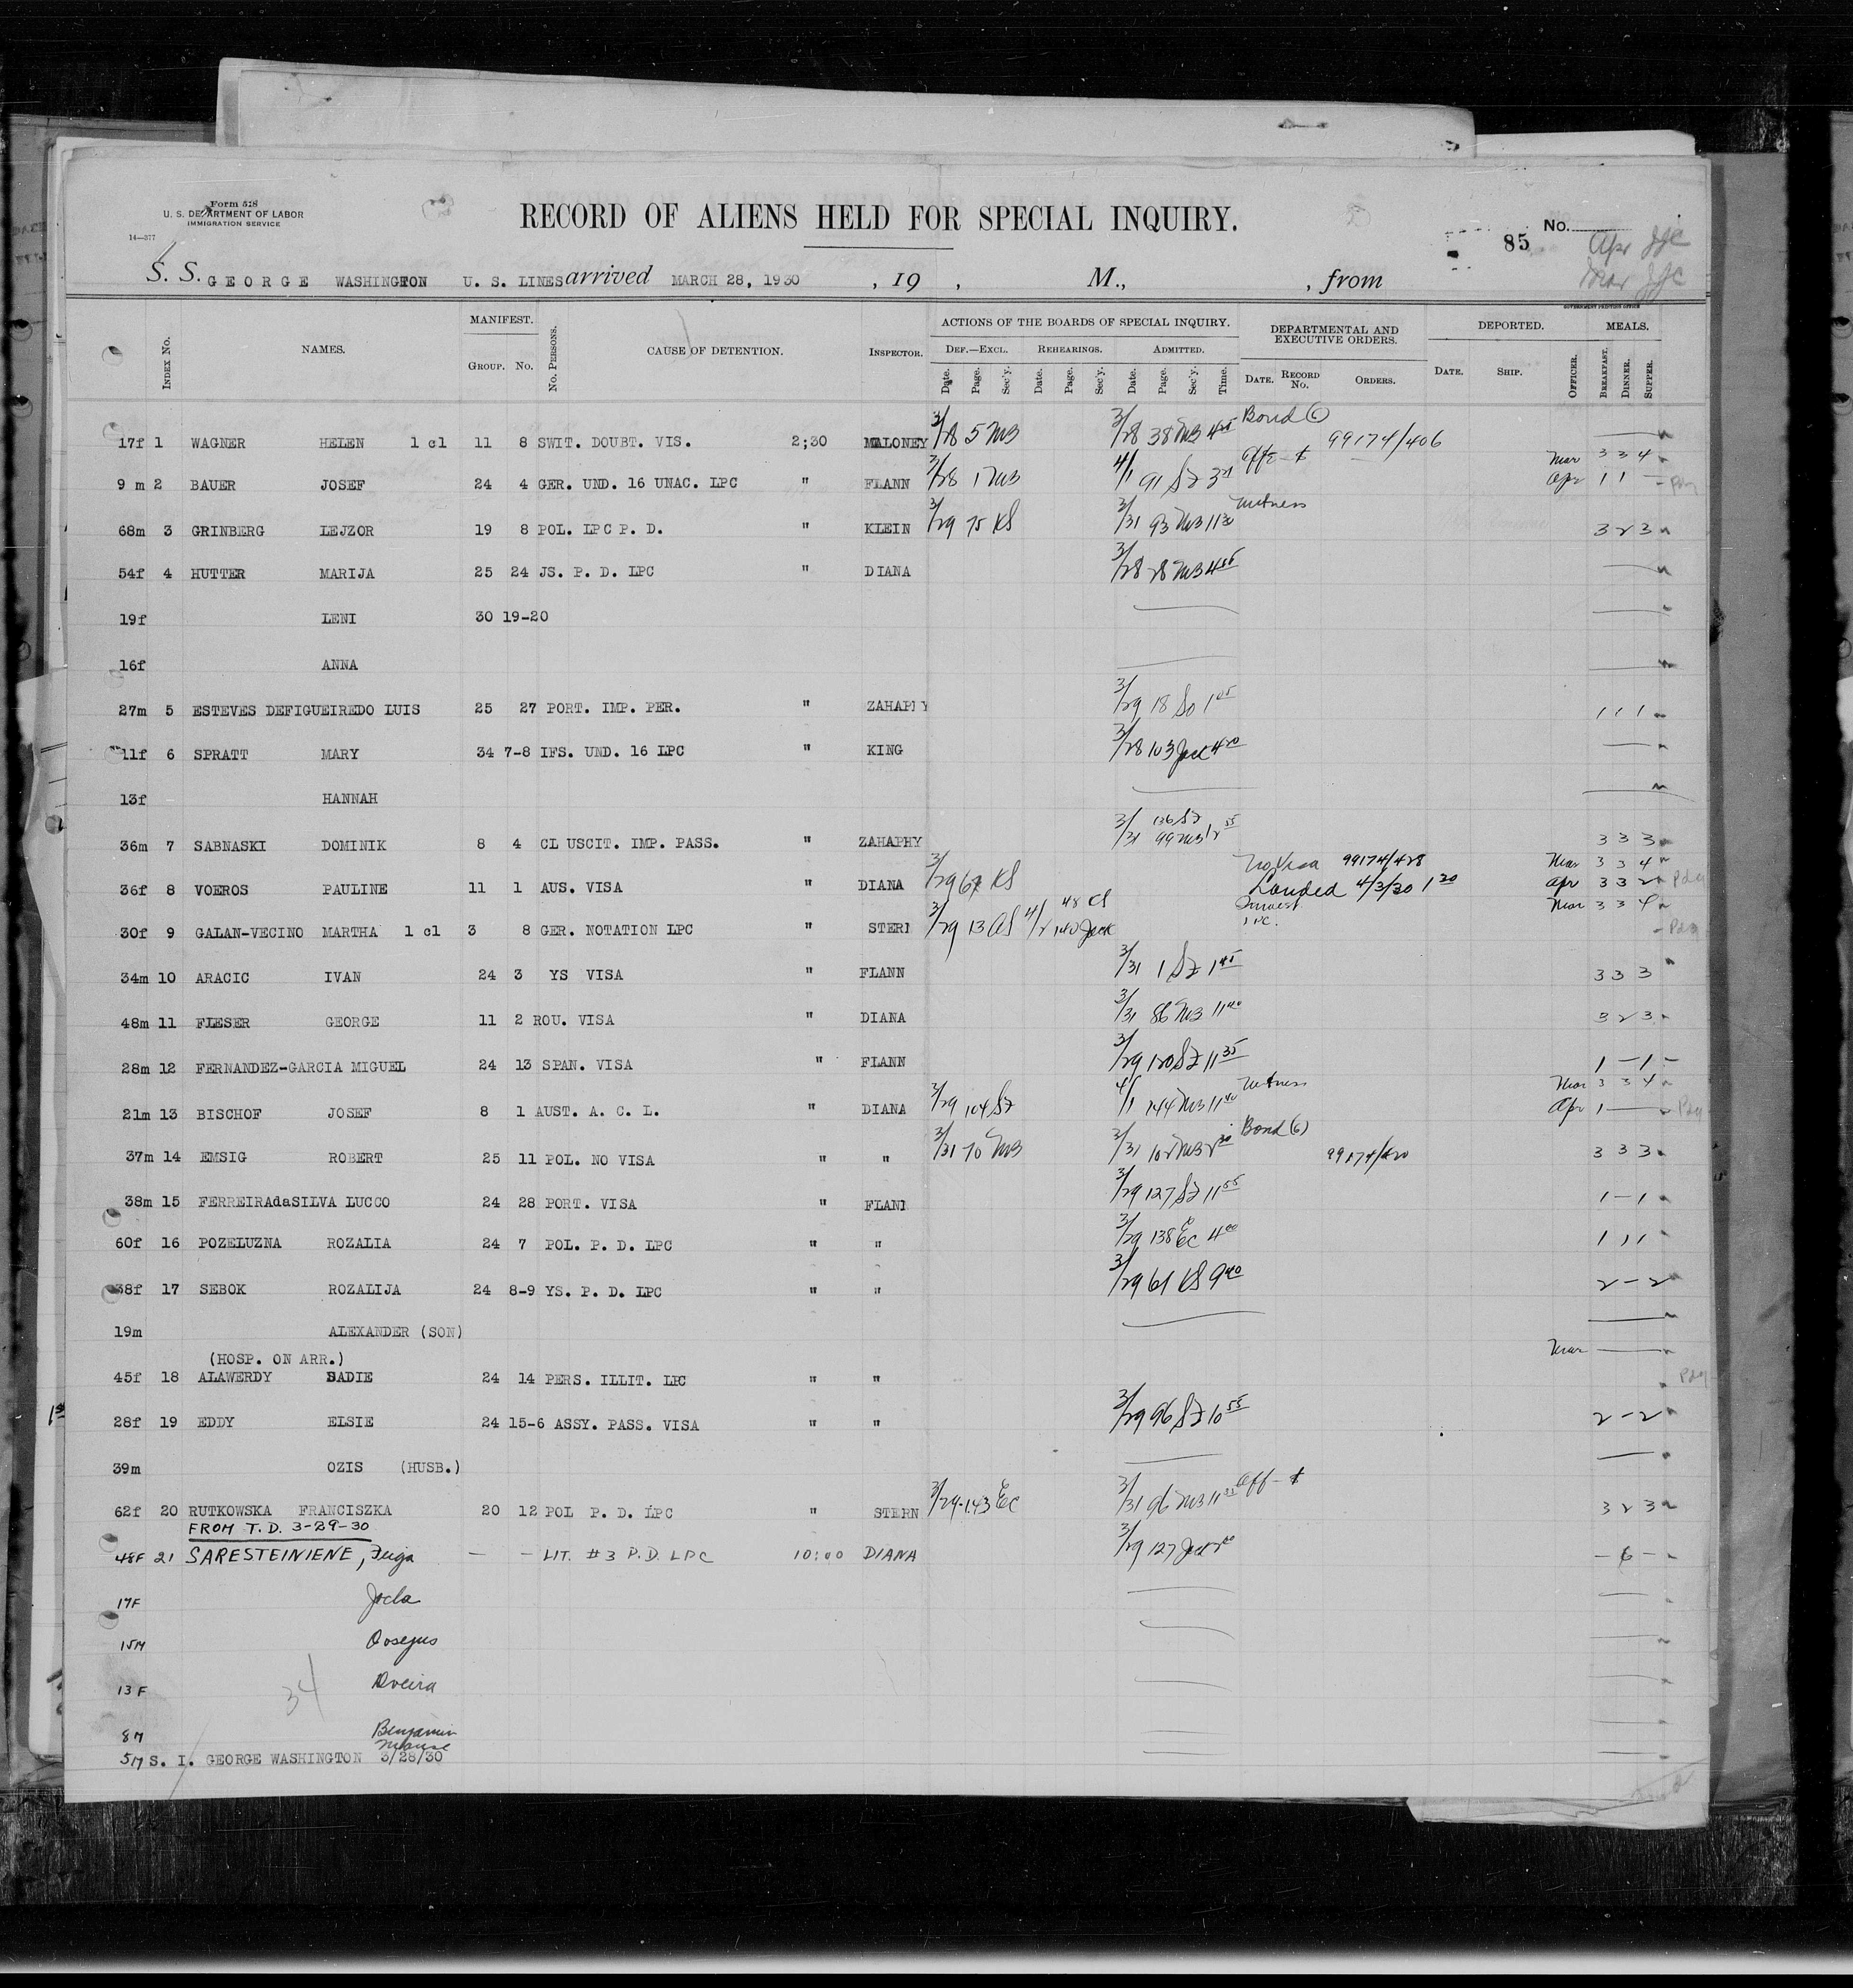 Form 518
U. S. DEPARTMENT OF LABOR
IMMIGRATION SERVICE
14—377
RECORD OF ALIENS HELD FOR SPECIAL INQUIRY.
No.
85
Apr JJC
Mar JJC
S. S. GEORGE WASHINGTON U. S. LINES arrived MARCH 28, 1930 , 19 , M., , from
GOVERNMENT PRINTING OFFICE
Index No. NAMES. MANIFEST. Group. No. No. Persons. CAUSE OF DETENTION. Inspector. ACTIONS OF THE BOARDS OF SPECIAL INQUIRY. DEPARTMENTAL AND EXECUTIVE ORDERS. DEPORTED. MEALS.
Def.—Excl. Rehearings. Admitted.
Date. Page. Sec'y. Date. Page. Sec'y. Date. Page. Sec'y. Time. Date. Record No. Orders. Date. Ship. Officer. Breakfast. Dinner. Supper.
17f 1 WAGNER HELEN 1 cl 11 8 SWIT. DOUBT. VIS. 2;30 MALONEY 3/28 5 MB 3/28 38 MB 4 Bond (6) 99174/406
9 m 2 BAUER JOSEF 24 4 GER. UND. 16 UNAC. LPC " FLANN 3/28 1 MB 4/1 91 SZ Mar 3 3 4
Apr 1 1 —
68m 3 GRINBERG LEJZOR 19 8 POL. LPC P. D. " KLEIN 3/29 75 KS 3/31 93 MB 11 30 Witness 3 2 3
54f 4 HUTTER MARIJA 25 24 JS. P. D. LPC " DIANA 3/28 28 MB 4
19f LENI 30 19-20
16f ANNA
27m 5 ESTEVES DEFIGUEIREDO LUIS 25 27 PORT. IMP. PER. " ZAHAPHY 3/29 18 So 1 1 1 1
11f 6 SPRATT MARY 34 7-8 IFS. UND. 16 LPC " KING 3/28 103 Jack 4 20
13f HANNAH
36m 7 SABNASKI DOMINIK 8 4 CL USCIT. IMP. PASS. " ZAHAPHY 3/31 136 SZ 99 MB 3 3 3
36f 8 VOEROS PAULINE 11 1 AUS. VISA " DIANA 3/29 67 KS No Visa 99174/428 Mar 3 3 4
Landed 4/3/30 1 30 Apr 3 3 2
30f 9 GALAN-VECINO MARTHA 1 cl 3 8 GER. NOTATION LPC " STERN 3/29 13 4/2 140 Jack Mar 3 3 4
34m 10 ARACIC IVAN 24 3 YS VISA " FLANN 3/31 1 SZ 1 45 3 3 3
48m 11 FIESER GEORGE 11 2 ROU. VISA " DIANA 3/31 86 MB 11 40 3 2 3
28m 12 FERNANDEZ-GARCIA MIGUEL 24 13 SPAN. VISA " FLANN 3/29 120 SZ 11 35 1 — 1
21m 13 BISCHOF JOSEF 8 1 AUST. A. C. L. " DIANA 3/29 104 SZ 4/1 144 MB 11 40 Witness Mar 3 3 4
Apr 1 —
37m 14 EMSIG ROBERT 25 11 POL. NO VISA " " 3/31 70 MB 3/31 102 MB 2 30 Bond (6) 99174/420 3 3 3
38m 15 FERREIRAdaSILVA LUCCO 24 28 PORT. VISA " FLANN 3/29 127 SZ 11 55 1 — 1
60f 16 POZELUZNA ROZALIA 24 7 POL. P. D. LPC " " 3/29 138 EC 4 00 1 1 1
38f 17 SEBOK ROZALIJA 24 8-9 YS. P. D. LPC " " 3/29 61 KS 9 40 2 — 2
19m ALEXANDER (SON)
(HOSP. ON ARR.) Mar —
45f 18 ALAWERDY SADIE 24 14 PERS. ILLIT. LPC " "
28f 19 EDDY ELSIE 24 15-6 ASSY. PASS. VISA " " 3/29 96 SZ 10 55 2 — 2
39m OZIS (HUSB.)
62f 20 RUTKOWSKA FRANCISZKA 20 12 POL P. D. LPC " STERN 3/29 143 EC 3/31 96 MB 11 3 2 3
FROM T. D. 3-29-30
48F 21 SARESTEINIENE, Feiga — — LIT. #3 P.D. LPC 10:00 DIANA 3/29 127 Jack — 6 —
17F Jocla
15M Oosejus
13 F Dveira
34
8M Benjamin
5M S. I. GEORGE WASHINGTON 3/28/30